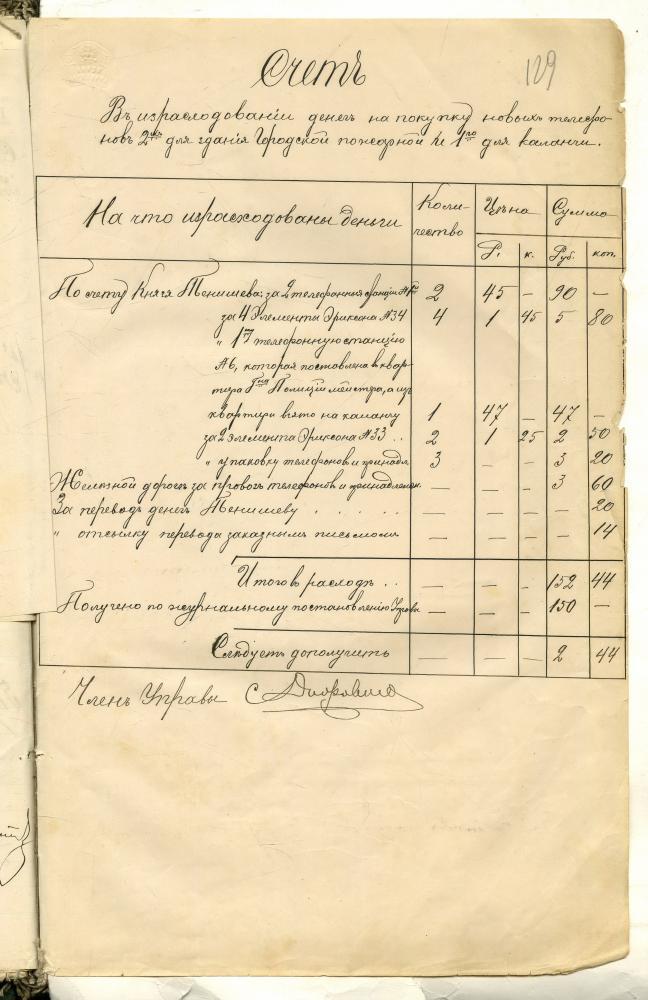 129
Счетъ
Въ израсходованіи денегъ на покупку новыхъ телефо-
новъ 2хъ для зданія Городской пожарной и 1го для каланчи.
На что израсходованы деньги
Коли-
чество
Цѣна
Сумма
Р.
к.
Руб.
коп.
По счету Князя Тенишева: за 2 телефонныя станціи 2 45 — 90 —
за 4 элемента Эриксона №34 4 1 45 5 80
" 1 телефонную станцію
№6, которая поставлена въ квар-
тирѣ Гна Полиціймейстера, а изъ
квартиры взято на каланчу 1 47 — 47 —
за 2 элемента Эриксона №33 . . 2 1 25 2 50
" упаковку телефоновъ и принадл. 3 — — 3 20
Желѣзной дорогѣ за провозъ телефоновъ и принадлежн. — — — 3 60
За переводъ денегъ Тенишеву . . . . . . — — — — 20
" отсылку перевода заказнымъ письмомъ — — — — 14
Итого въ расходъ . . — — — 152 44
Получено по журнальному постановленію Управы — — — 150 —
Слѣдуетъ дополучить — — — 2 44
Членъ Управы С